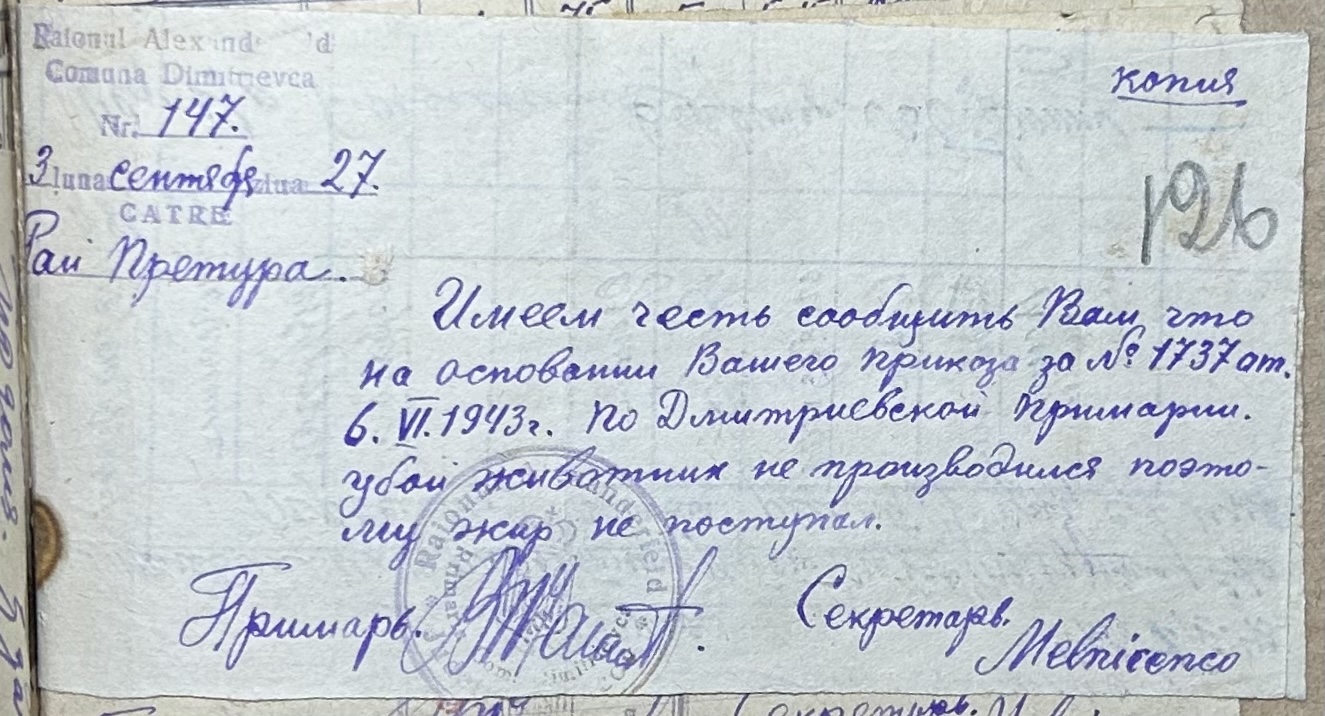 Raionul Alexanderfeld
Comuna Dimitrievca
копия
Nr. 147.
3 luna сентября ziua 27.
126
CATRE
Рай Претура.
Имеем честь сообщить Вам что
на основании Вашего приказа за № 1737 от.
6. VI. 1943г. по Дмитриевской примарии.
убой животних не производился поэто-
му жир не поступал.
Примарь.
Секретарь.
Melnicenco